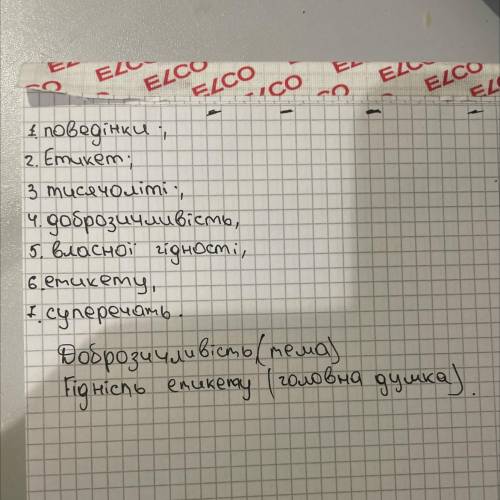 ELCO ELCO ELCO ELCO ELCO
1. поведінки;,
2. Етикет;
3 тисячоліті;,
4. доброзичливість,
5. власної гідності,
6. етикету,
7. суперечать.
Доброзичливість (тема)
Гідність етикету (головна думка).